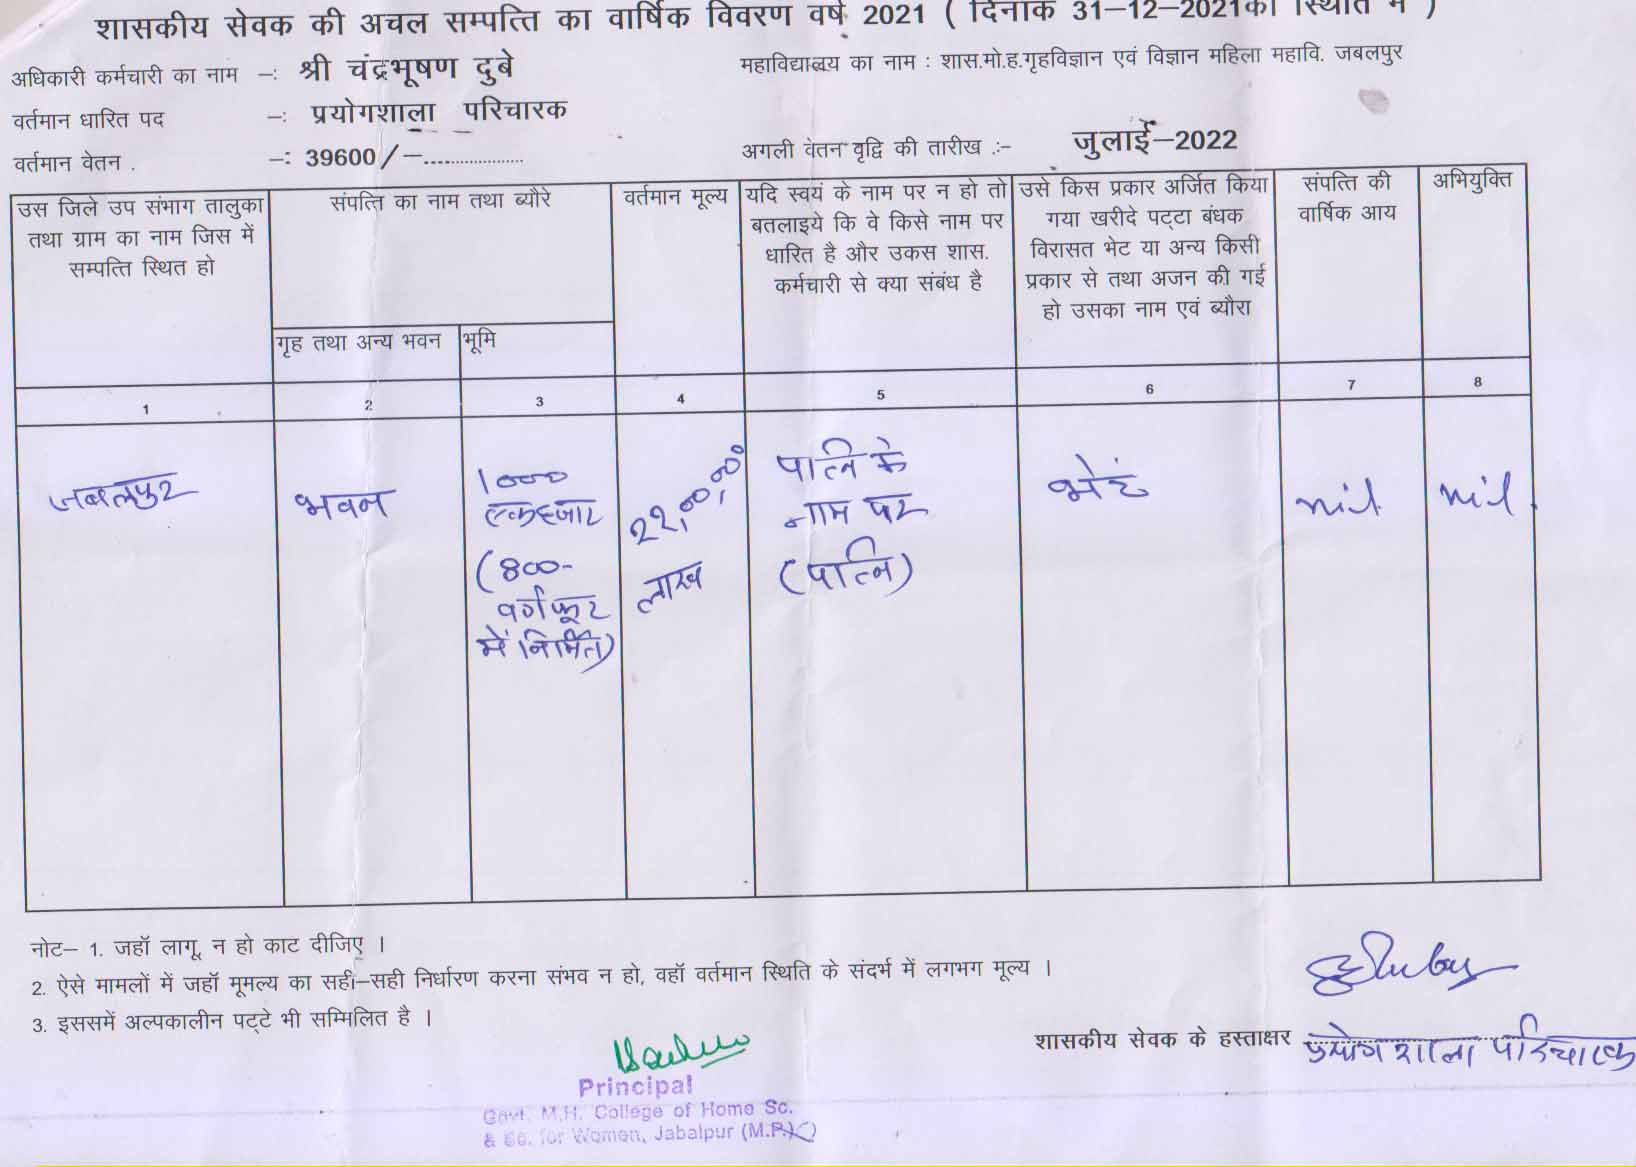 शासकीय सेवक की अचल सम्पत्ति का वार्षिक विवरण वर्ष 2021 ( दिनांक 31–12–2021की स्थिति में )
अधिकारी कर्मचारी का नाम –: श्री चंद्रभूषण दुबे
महाविद्यालय का नाम : शास.मो.ह.गृहविज्ञान एवं विज्ञान महिला महावि. जबलपुर
वर्तमान धारित पद –: प्रयोगशाला परिचारक
वर्तमान वेतन . –: 39600/–....................
अगली वेतन वृद्वि की तारीख .:– जुलाई–2022
उस जिले उप संभाग तालुका
तथा ग्राम का नाम जिस में
सम्पत्ति स्थित हो
संपत्ति का नाम तथा ब्यौरे
गृह तथा अन्य भवन
भूमि
वर्तमान मूल्य
यदि स्वयं के नाम पर न हो तो
बतलाइये कि वे किसे नाम पर
धारित है और उकस शास.
कर्मचारी से क्या संबंध है
उसे किस प्रकार अर्जित किया
गया खरीदे पट्टा बंधक
विरासत भेट या अन्य किसी
प्रकार से तथा अजन की गई
हो उसका नाम एवं ब्यौरा
संपत्ति की
वार्षिक आय
अभियुक्ति
1 2 3 4 5 6 7 8
जबलपुर
भवन
1000
एकहजार
(800-
वर्गफूट
में निर्मित)
22,00,000
लाख
पत्नि के
नाम पर
(पत्नि)
nil
nil
नोट– 1. जहॉ लागू, न हो काट दीजिए ।
2. ऐसे मामलों में जहॉ मूमल्य का सही–सही निर्धारण करना संभव न हो, वहॉ वर्तमान स्थिति के संदर्भ में लगभग मूल्य ।
3. इससमें अल्पकालीन पट्टे भी सम्मिलित है ।
शासकीय सेवक के हस्ताक्षर प्रयोगशाला परिचारक
Principal
Govt. M.H. College of Home Sc.
& Sc. for Women, Jabalpur (M.P.)